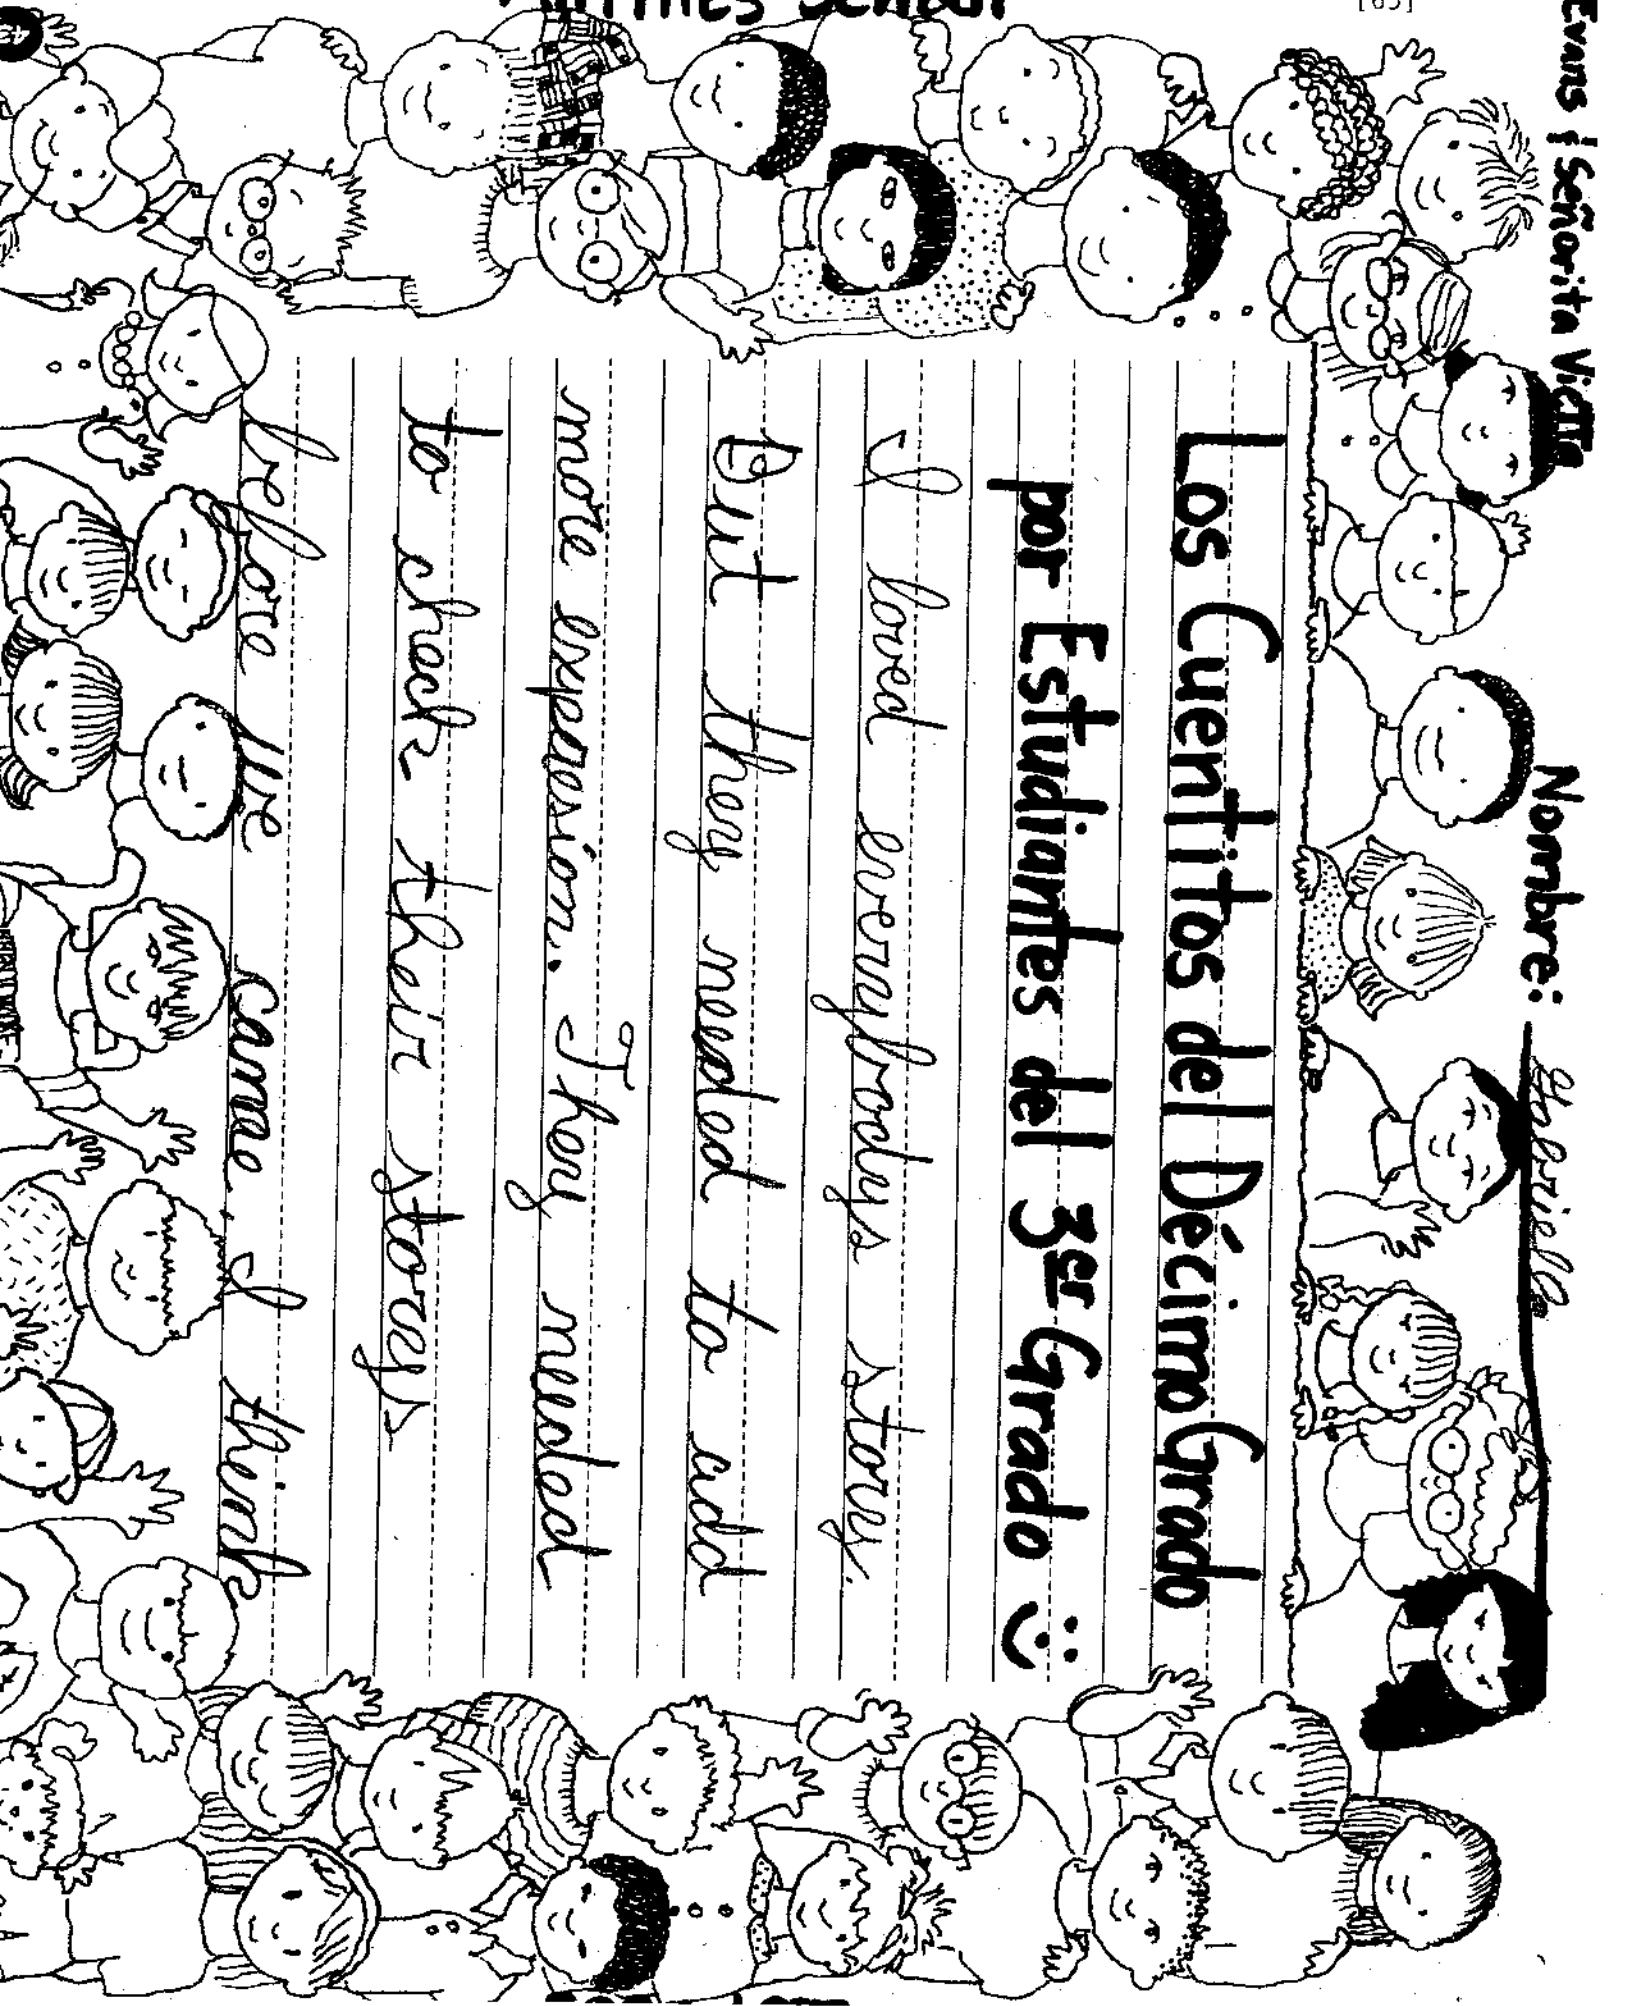 Evans y Señorita Victita
Nombre: Gabrielle
Los Cuentitos del Décimo Grado
por Estudiantes del 3er Grado
I loved everybodys story.
But they needed to add
more expresion. They needed
to check their storeys
before We came. I think